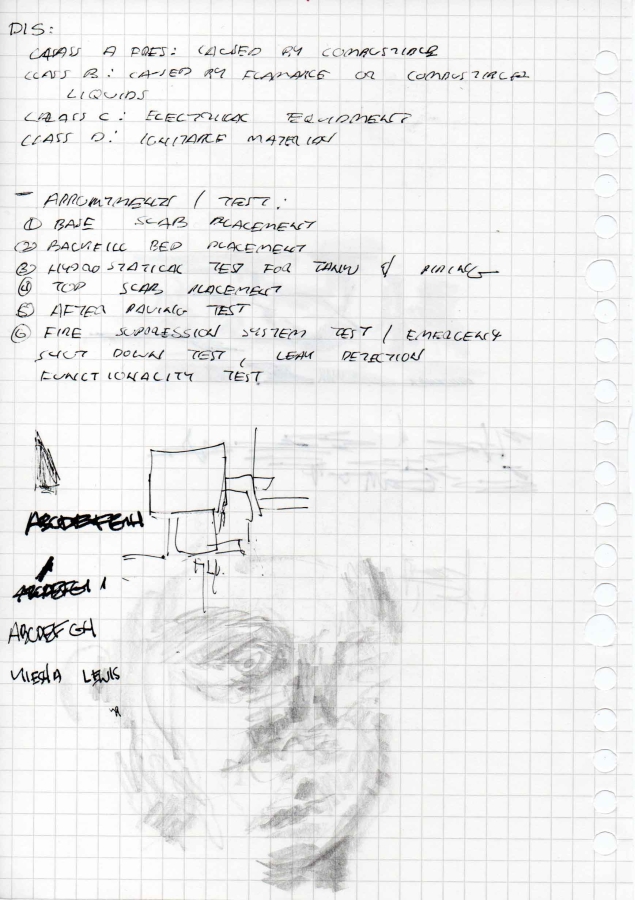 DIS:
CLASS A FIRES: CAUSED BY COMBUSTIBLE
CLASS B: CAUSED BY FLAMABLE OR COMBUSTIBLE
LIQUIDS
CLASS C: ELECTRICAL EQUIPMENT
CLASS D: IGNITABLE
- APPOINTMENTS / TEST:
① BASE SLAB PLACEMENT
② BACKFILL BED PLACEMENT
③ HYDROSTATICAL TEST FOR TANK & PIPING
④ TOP SLAB PLACEMENT
⑤ AFTER PAVING TEST
⑥ FIRE SUPRESSION SYSTEM TEST / EMERGENCY
SHUT DOWN TEST, LEAK DETECTION
FUNCTIONALITY TEST
ABCDEFGH
ABCDEFGH
ABCDEFGH
LEWIS